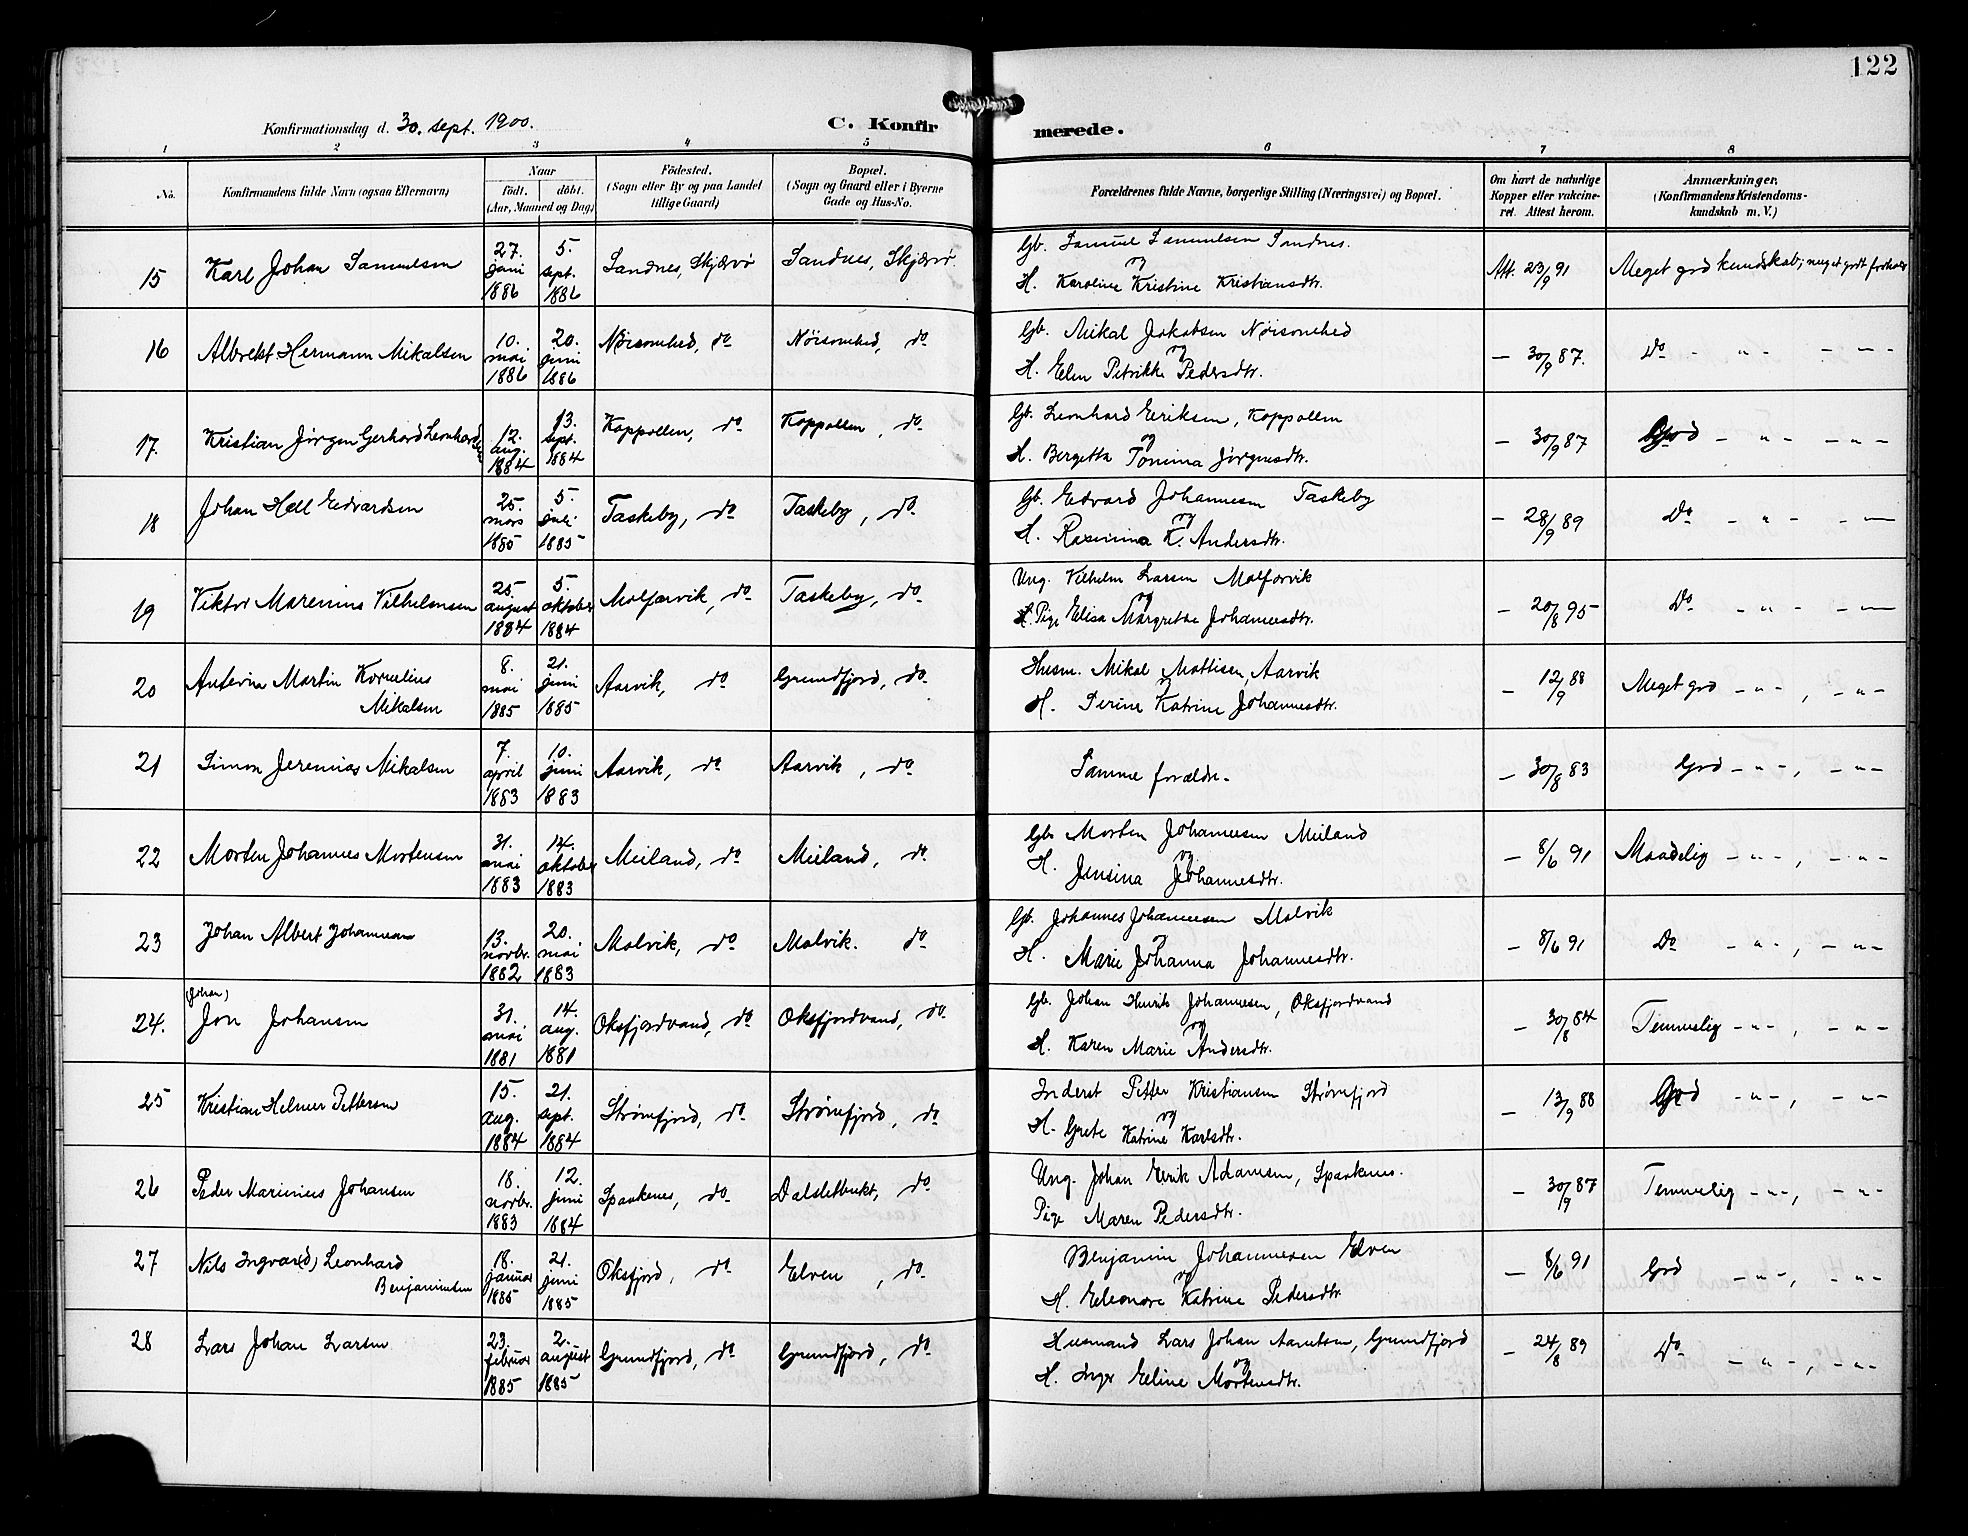 122
Konfirmationsdag d. 30. sept. 1900.
C. Konfirmerede.
1 2 3 4 5 6 7 8
No.
Konfirmandens fulde Navn (ogsaa Efternavn)
Naar
födt. döbt.
(Aar, Maaned og Dag)
Födested.
(Sogn eller By og paa Landet
tillige Gaard)
Bopæl.
(Sogn og Gaard eller i Byerne
Gade og Hus-No.
Forældrenes fulde Navne, borgerlige Stilling (Næringsvei) og Bopæl.
Om havt de naturlige
Kopper eller vakcine-
ret. Attest herom.
Anmærkninger.
(Konfirmandens Kristendoms-
kundskab m. V.)
15 Karl Johan Samuelsen 27. juni 1886 5. sept. 1886 Sandnes, Skjærvø Sandnes, Skjærvø
Gb. Samuel Samuelsen Sandnes.
og
H. Karoline Kristine Kristiansdtr.
Att. 23/9 91 Meget god kundskab; meget godt forhold
16 Albrekt Hermann Mikalsen 10. mai 1886 20. juni 1886 Nøisomhed, do Nøisomhed, do
Gb. Mikal Jakobsen Nøisomhed
og
H. Elen Petrikke Pedersdtr.
— 30/9 87. Do - " - - " -
17. Kristian Jørgen Gerhard Leonhardsen 12. aug. 1884 13. sept. 1884 Koppollen, do Koppollen, do
Gb. Leonhard Eriksen, Koppollen
og
H. Bergetta Tomina Jørginesdtr.
— 30/9 87 God - " - - " -
18 Johan Hall Edvardsen 25. mars 1885 5. juli 1885 Taskeby, do Taskeby, do
Gb. Edvard Johannesen Taskeby
og
H. Rasmina K. Andersdtr.
— 28/9 89 Do - " - - " -
19 Viktor Marenius Vilhelmsen 25. august 1884 5. oktober 1884 Molfarvik, do Taskeby, do
Ung. Vilhelm Larsen Molfarvik
og
Pige Elisa Margrethe Johannesdtr.
— 20/8 95 Do - " - - " -
20 Martin Kornelius
Mikalsen 8. mai 1885 21. juni 1885 Aarvik, do Grundfjord, do
Husm. Mikal Mattisen, Aarvik
og
H. Perine Katrine Johannesdtr.
— 12/9 88 Meget god - " - , - " -
21 Simon Jeremias Mikalsen 7. april 1883 10. juni 1883 Aarvik, do Aarvik, do
Samme forældre.
— 30/8 83 God - " - , - " -
22 Morten Johannes Mortensen 31. mai 1883 14. oktober 1883 Meiland, do Meiland, do
Gb. Morten Johannesen Meiland
og
H. Jensina Johannesdtr.
— 8/6 91 Maadelig - " - , - " -
23 Johan Albert Johannesen 13. novbr. 1882 20. mai 1883 Molvik, do Molvik. do
Gb. Johannes Johannesen Molvik
og
H. Marie Johanna Johannesdtr.
— 8/6 91 Do - " - , - " -
24. (Johan)
Jon Johansen 31. mai 1881 14. aug. 1881 Oksfjordvand, do Oksfjordvand, do
Gb. Johan Henrik Johannesen, Oksfjordvand
og
H. Karen Marie Andersdtr.
— 30/8 84 Temmelig - " - , - " -
25 Kristian Helmer Pettersen 15. aug. 1884 21. sept. 1884 Strømfjord, do Strømfjord, do
Inderst Petter Kristiansen Strømfjord
og
H. Grete Katrine Karlsdtr.
— 13/9 88 God - " - , - " -
26 Peder Marinius Johansen 18. novbr. 1883 12. juni 1884 Spaakenes, do Dalsletbukt, do
Ung. Johan Erik Adamsen, Spaakenes.
Pige Maren Pedersdtr.
— 30/9 87 Temmelig - " - , - " -
27 Nils Ingvar(d) Leonhard
Benjaminsen 18. januar 1885 21. juni 1885 Oksfjord, do Elven, do
Benjamin Johannesen Elven
og
H. Eleonore Katrine Pedersdtr.
— 8/6 91 God - " - , - " -
28 Lars Johan Larsen 23. februar 1885 2. august 1885 Grundfjord, do Grundfjord, do
Husmand Lars Johan Aanetsen, Grundfjord
og
H. Inger Eline Mortensdtr.
— 24/8 89 Do - " - , - " -